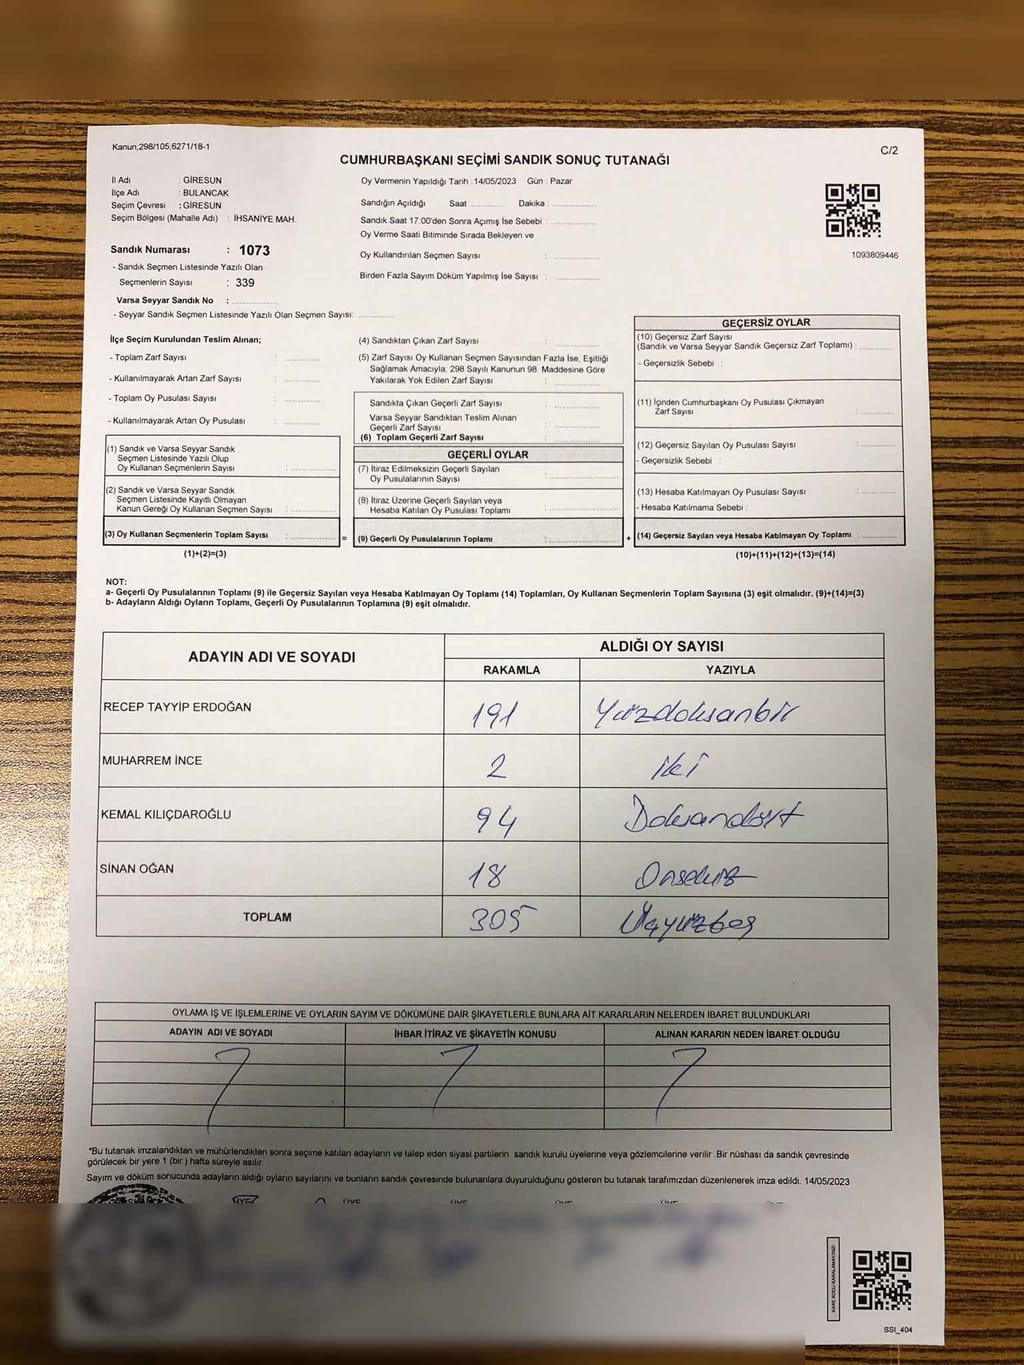 Kanun;298/105;6271/18-1
C/2
CUMHURBAŞKANI SEÇİMİ SANDIK SONUÇ TUTANAĞI
İl Adı : GİRESUN
İlçe Adı : BULANCAK
Seçim Çevresi : GİRESUN
Seçim Bölgesi (Mahalle Adı) : İHSANİYE MAH.
Sandık Numarası : 1073
- Sandık Seçmen Listesinde Yazılı Olan
Seçmenlerin Sayısı : 339
Varsa Seyyar Sandık No : ...............
- Seyyar Sandık Seçmen Listesinde Yazılı Olan Seçmen Sayısı: ...........
Oy Vermenin Yapıldığı Tarih :14/05/2023 Gün : Pazar
Sandığın Açıldığı Saat ........... Dakika : ...............
Sandık Saat 17:00'den Sonra Açımış İse Sebebi : ...............
Oy Verme Saati Bitiminde Sırada Bekleyen ve
Oy Kullandırılan Seçmen Sayısı : ...............
Birden Fazla Sayım Döküm Yapılmış İse Sayısı : ...............
1093809446
İlçe Seçim Kurulundan Teslim Alınan;
- Toplam Zarf Sayısı : ...............
- Kullanılmayarak Artan Zarf Sayısı : ...............
- Toplam Oy Pusulası Sayısı : ...............
- Kullanılmayarak Artan Oy Pusulası : ...............
(1) Sandık ve Varsa Seyyar Sandık
Seçmen Listesinde Yazılı Olup
Oy Kullanan Seçmenlerin Sayısı : ...............
(2) Sandık ve Varsa Seyyar Sandık
Seçmen Listesinde Kayıtlı Olmayan
Kanun Gereği Oy Kullanan Seçmen Sayısı : ...............
(3) Oy Kullanan Seçmenlerin Toplam Sayısı : ............... =
(1)+(2)=(3)
(4) Sandıktan Çıkan Zarf Sayısı : ...............
(5) Zarf Sayısı Oy Kullanan Seçmen Sayısından Fazla İse, Eşitliği
Sağlamak Amacıyla; 298 Sayılı Kanunun 98. Maddesine Göre
Yakılarak Yok Edilen Zarf Sayısı : ...............
Sandıkta Çıkan Geçerli Zarf Sayısı : ...............
Varsa Seyyar Sandıktan Teslim Alınan
Geçerli Zarf Sayısı : ...............
(6) Toplam Geçerli Zarf Sayısı : ...............
GEÇERLİ OYLAR
(7) İtiraz Edilmeksizin Geçerli Sayılan
Oy Pusulalarının Sayısı : ...............
(8) İtiraz Üzerine Geçerli Sayılan veya
Hesaba Katılan Oy Pusulası Toplamı : ...............
(9) Geçerli Oy Pusulalarının Toplamı : ............... +
GEÇERSİZ OYLAR
(10) Geçersiz Zarf Sayısı
(Sandık ve Varsa Seyyar Sandık Geçersiz Zarf Toplamı) : ...........
- Geçersizlik Sebebi :
(11) İçinden Cumhurbaşkanı Oy Pusulası Çıkmayan
Zarf Sayısı : ...........
(12) Geçersiz Sayılan Oy Pusulası Sayısı : ...........
- Geçersizlik Sebebi :
(13) Hesaba Katılmayan Oy Pusulası Sayısı : ...........
- Hesaba Katılmama Sebebi :
(14) Geçersiz Sayılan veya Hesaba Katılmayan Oy Toplamı : ...........
(10)+(11)+(12)+(13)=(14)
NOT:
a- Geçerli Oy Pusulalarının Toplamı (9) ile Geçersiz Sayılan veya Hesaba Katılmayan Oy Toplamı (14) Toplamları, Oy Kullanan Seçmenlerin Toplam Sayısına (3) eşit olmalıdır. (9)+(14)=(3)
b- Adayların Aldığı Oyların Toplamı, Geçerli Oy Pusulalarının Toplamına (9) eşit olmalıdır.
ADAYIN ADI VE SOYADI ALDIĞI OY SAYISI
RAKAMLA YAZIYLA
RECEP TAYYİP ERDOĞAN 191 Yüzdoksanbir
MUHARREM İNCE 2 iki
KEMAL KILIÇDAROĞLU 94 Doksandört
SİNAN OĞAN 18 Onsekiz
TOPLAM 305 Üçyüzbeş
OYLAMA İŞ VE İŞLEMLERİNE VE OYLARIN SAYIM VE DÖKÜMÜNE DAİR ŞİKAYETLERLE BUNLARA AİT KARARLARIN NELERDEN İBARET BULUNDUKLARI
ADAYIN ADI VE SOYADI İHBAR İTİRAZ VE ŞİKAYETİN KONUSU ALINAN KARARIN NEDEN İBARET OLDUĞU
*Bu tutanak imzalandıktan ve mühürlendikten sonra seçime katılan adayların ve talep eden siyasi partilerin sandık kurulu üyelerine veya gözlemcilerine verilir .Bir nüshası da sandık çevresinde
görülecek bir yere 1 (bir ) hafta süreyle asılır.
Sayım ve döküm sonucunda adayların aldığı oyların sayılarını ve bunların sandık çevresinde bulunanlara duyurulduğunu gösteren bu tutanak tarafımızdan düzenlenerek imza edildi. 14/05/2023
KARE KODU KARALAMAYINIZ!
SSI_404